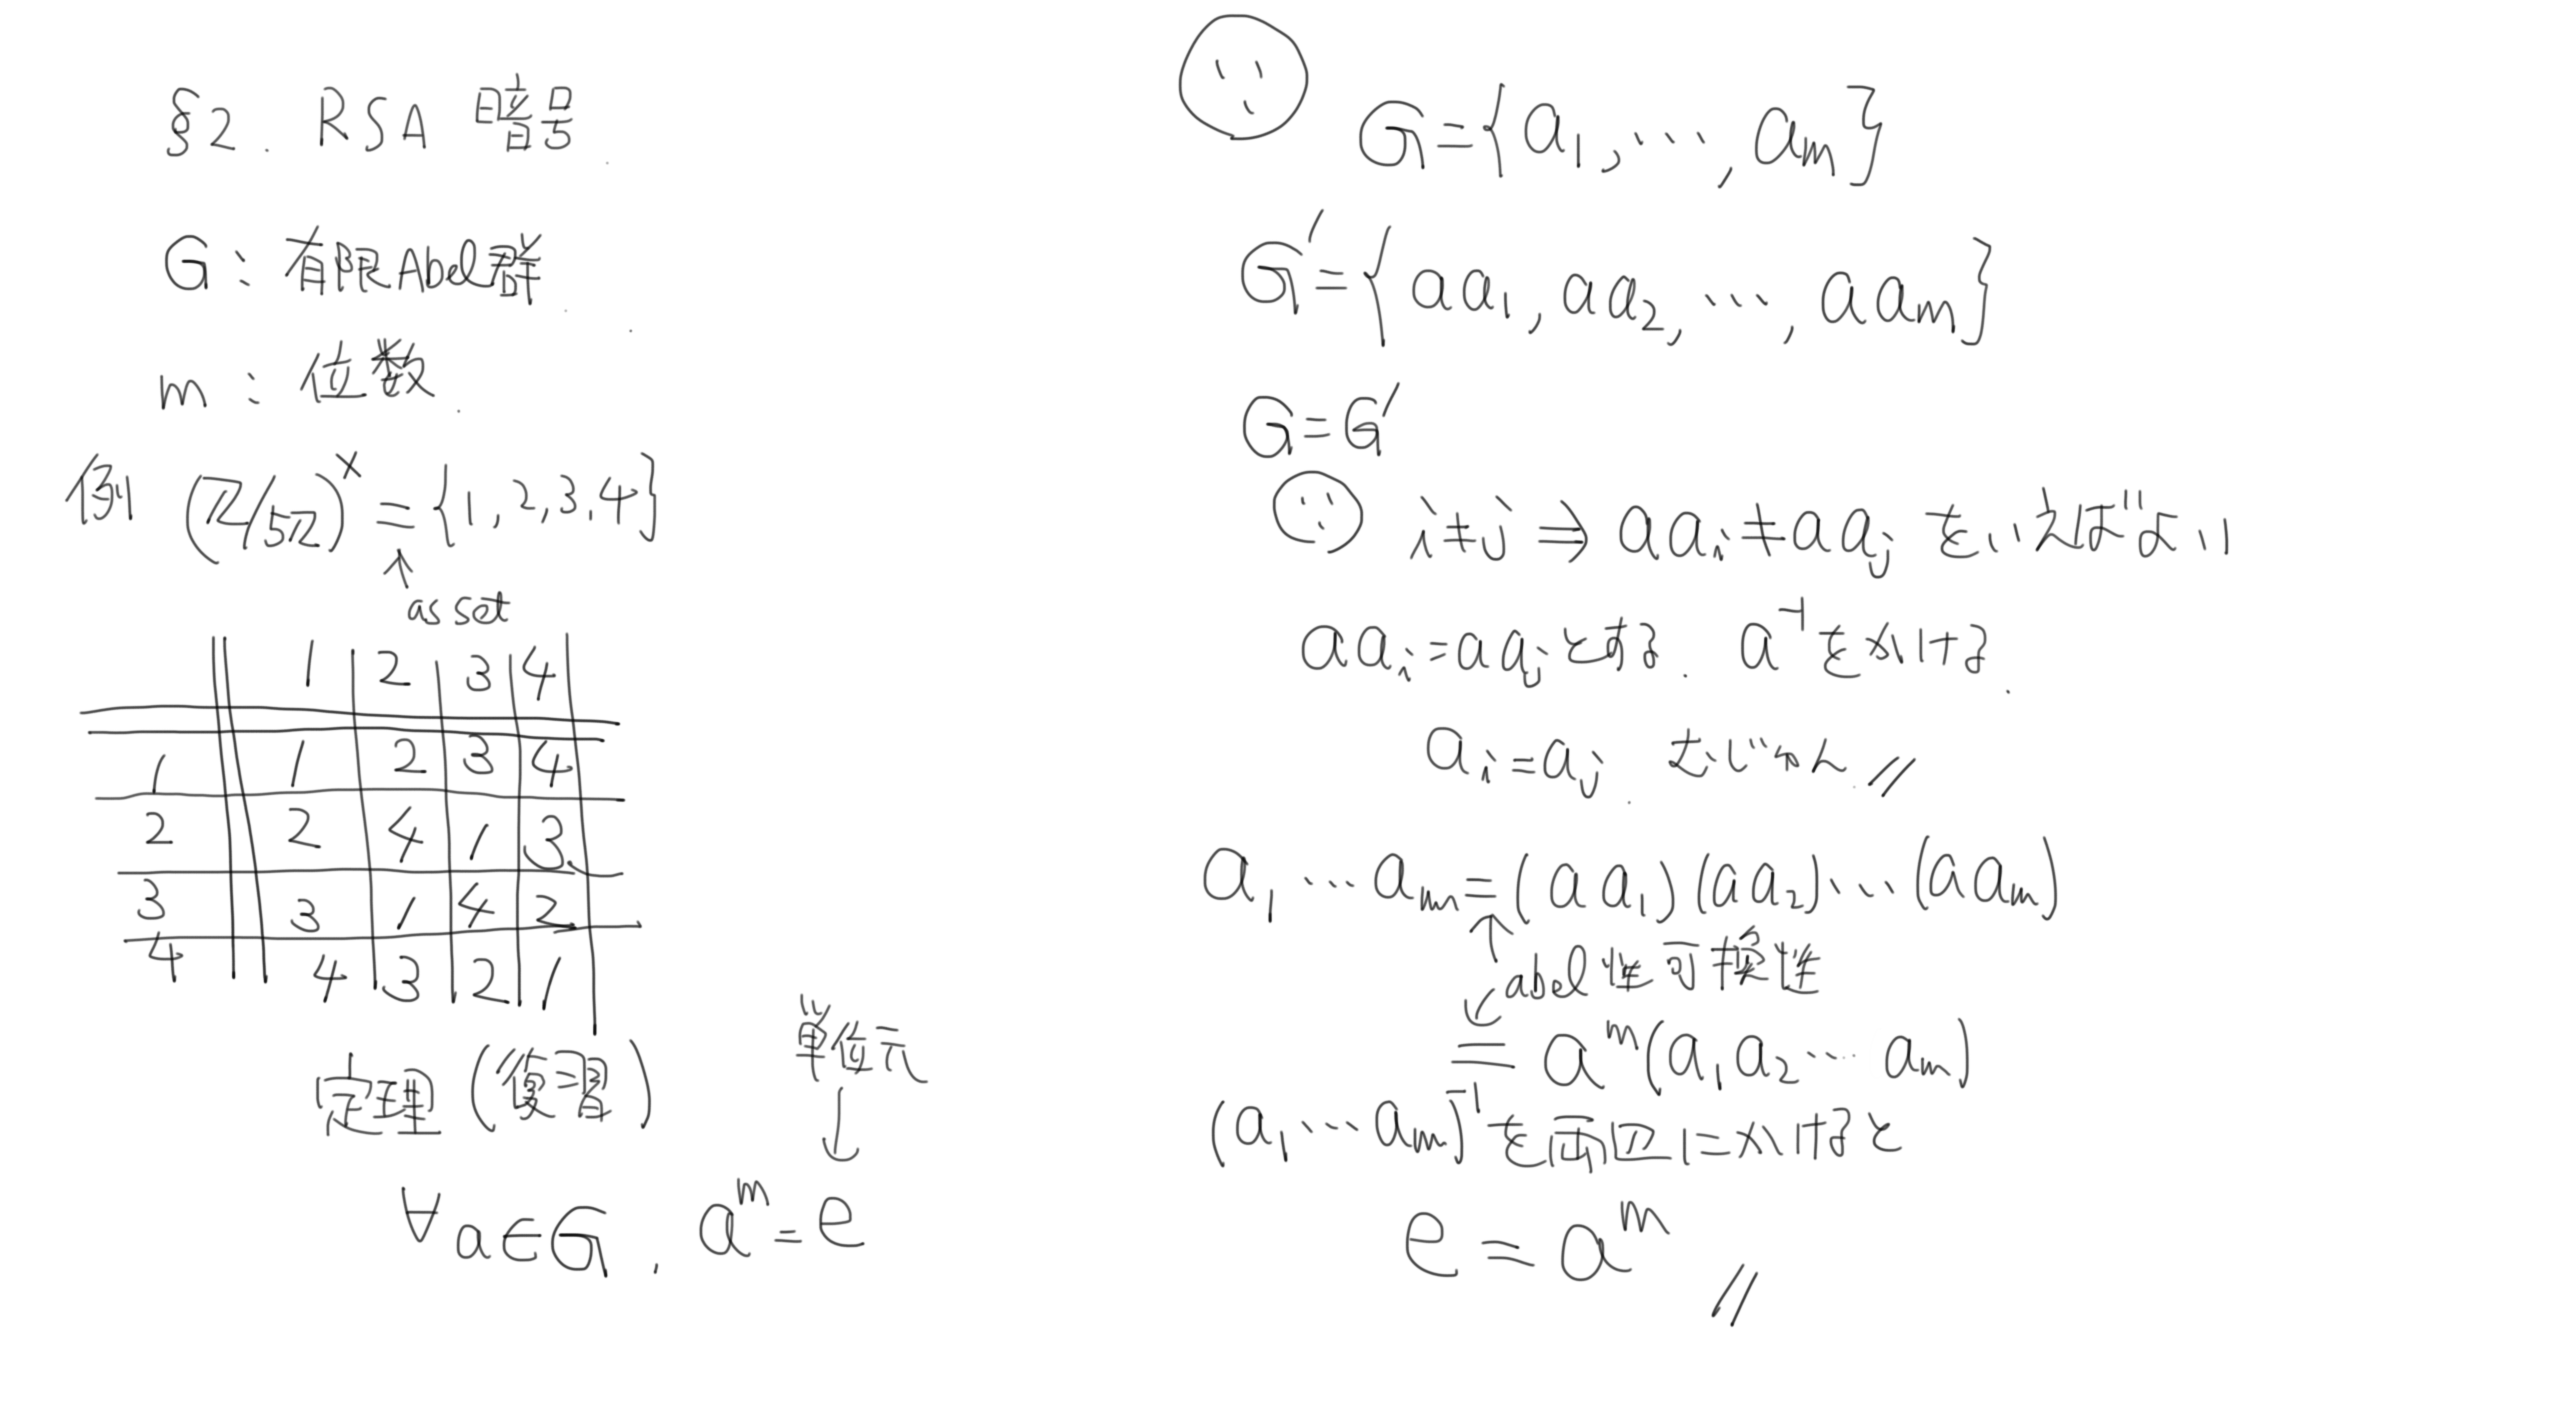 §2. RSA 暗号
G: 有限Abel群
m: 位数
例 (ℤ/5ℤ)^× = {1, 2, 3, 4}
↑
as set
1 2 3 4
1 1 2 3 4
2 2 4 1 3
3 3 1 4 2
4 4 3 2 1
定理 (復習)
単位元
↓
∀a∈G, a^m = e
∵ G = {a₁, ⋯, aₘ}
G′ = {aa₁, aa₂, ⋯, aaₘ}
G = G′
∵ i ≠ j ⇒ aaᵢ ≠ aaⱼ をいえばよい
aaᵢ = aaⱼとする. a⁻¹をかける.
aᵢ = aⱼ. むじゅん.//
a₁ ⋯ aₘ = (aa₁)(aa₂)⋯(aaₘ)
↑
↙ abel性可換性
= a^m(a₁a₂ ⋯ aₘ)
(a₁ ⋯ aₘ)⁻¹を両辺にかけると
e = a^m //